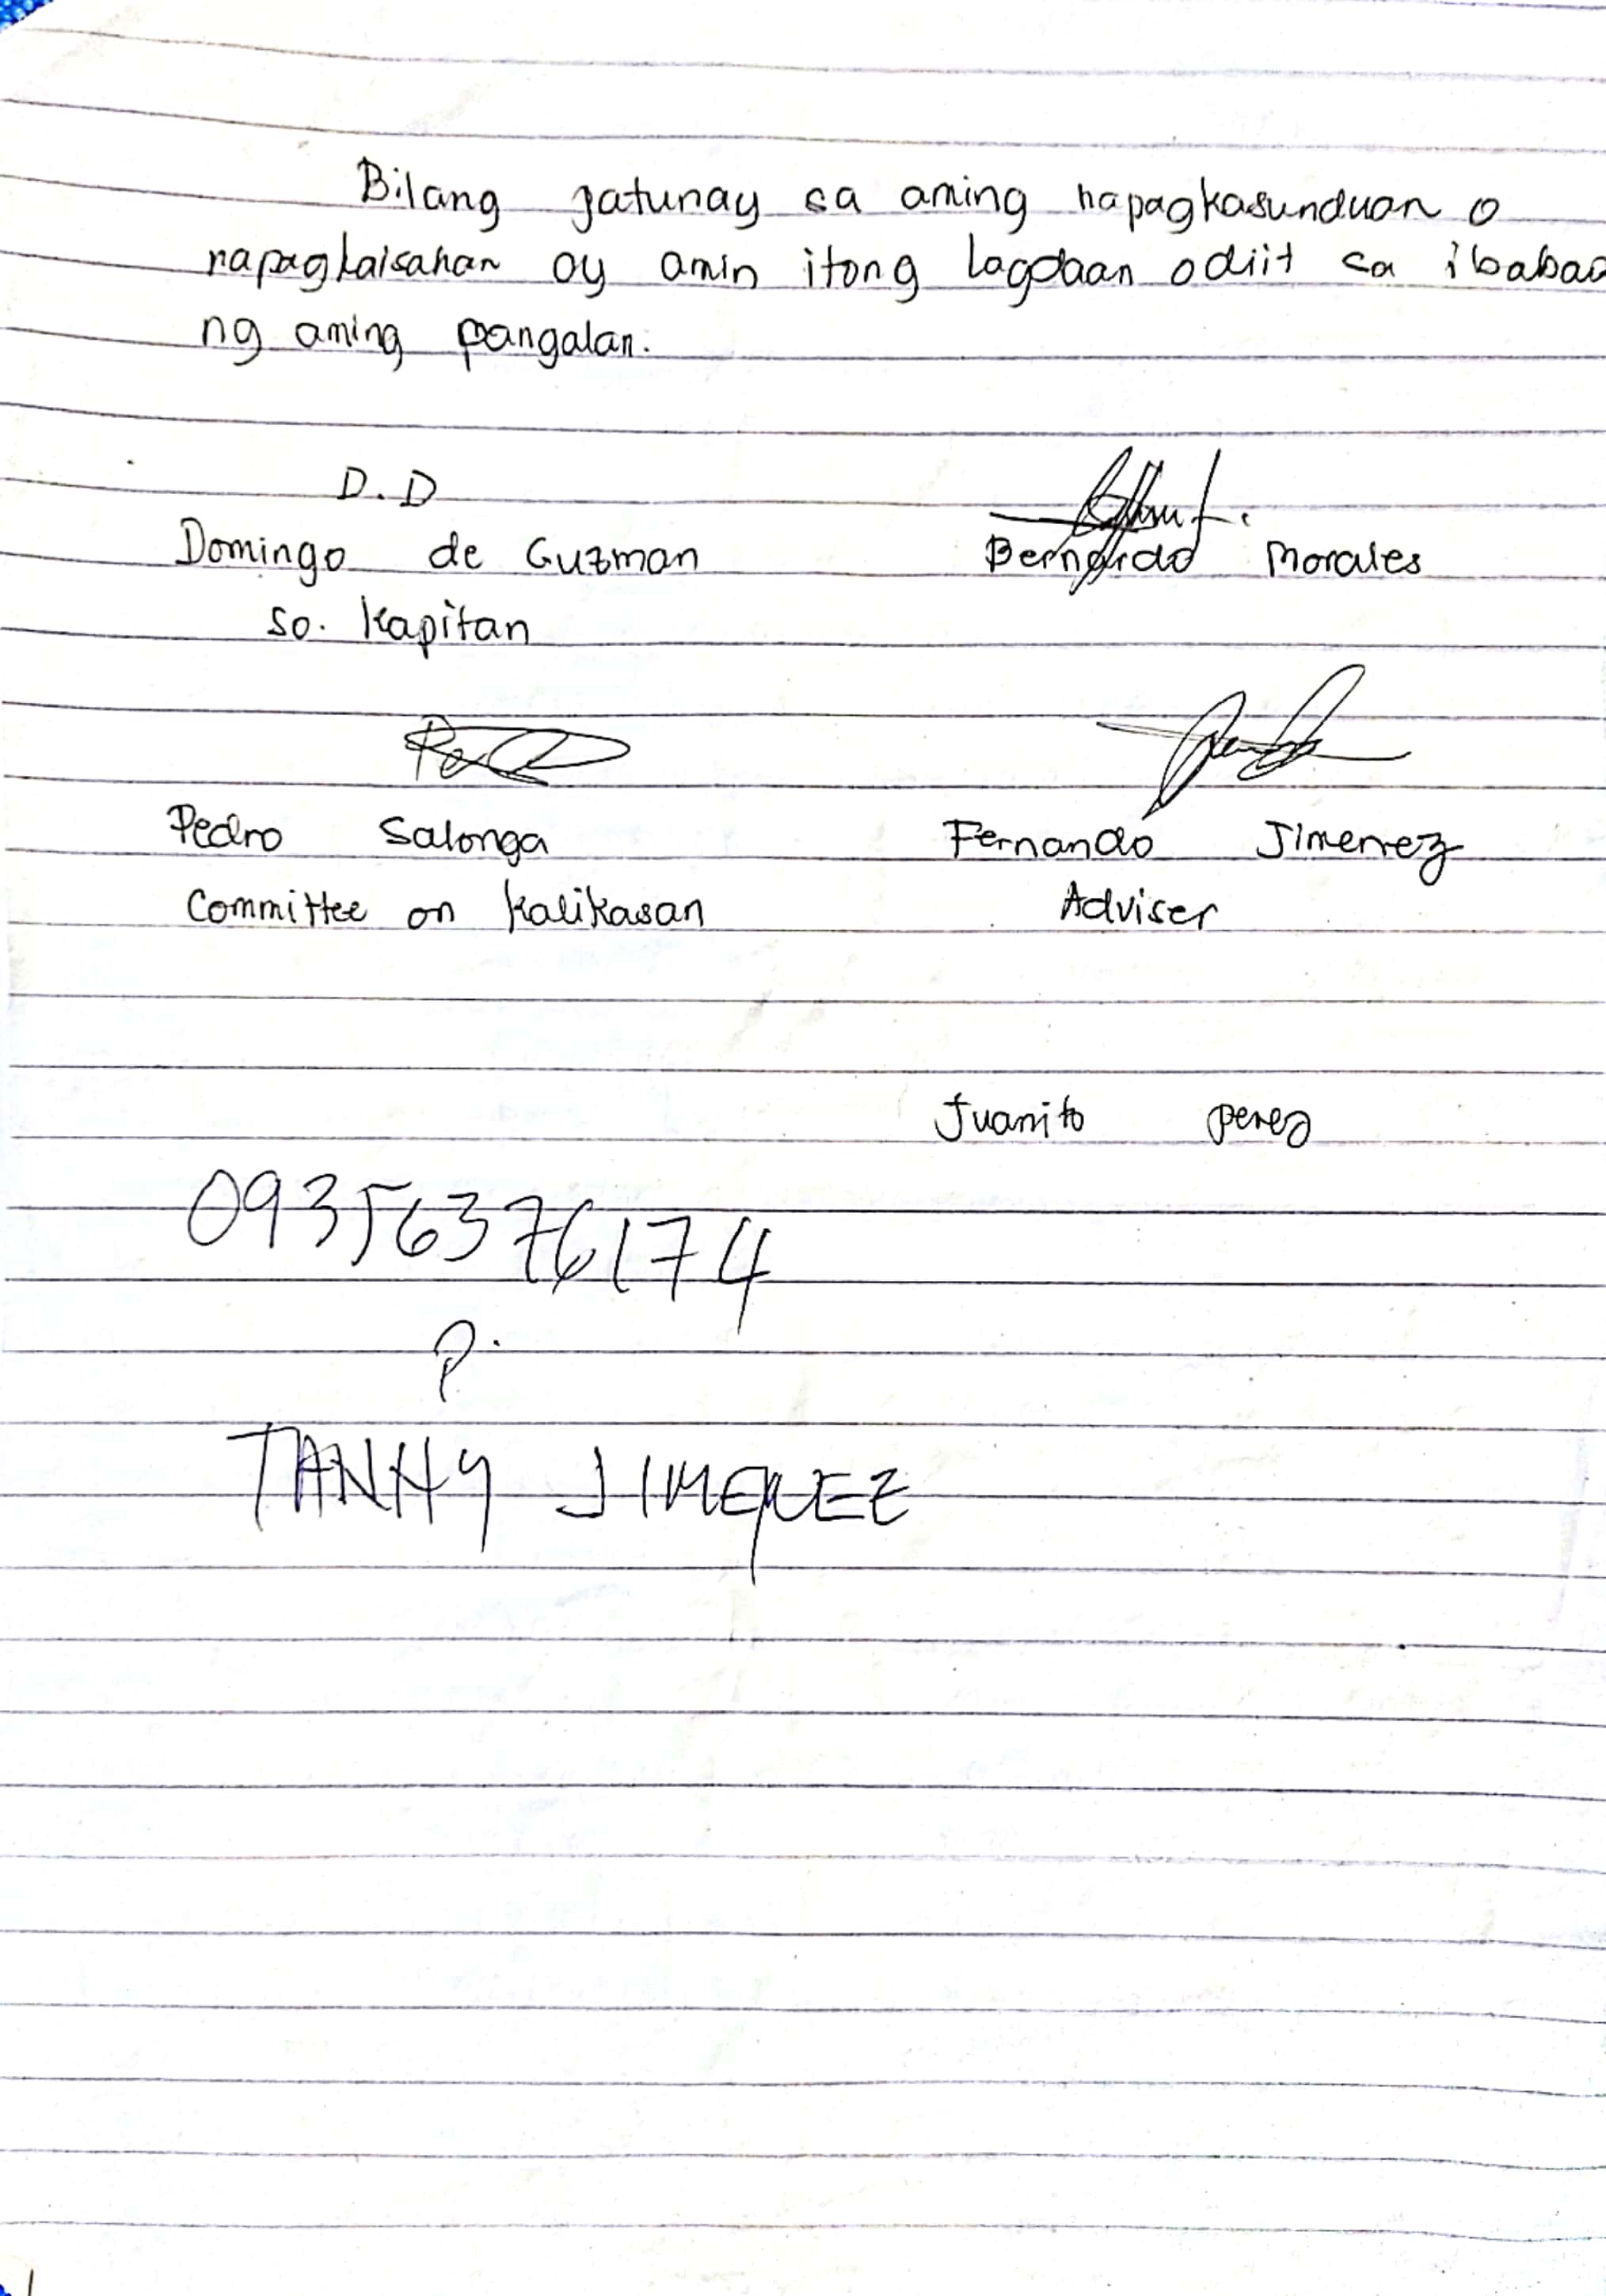 Bilang patunay sa aming napagkasunduan o
napagkaisahan ay amin itong lagdaan odiit sa ibabaa
ng aming pangalan.
D.D
Domingo de Guzman Bernardo Morales
So. Kapitan
Pedro Salonga Fernando Jimenez
Committee on Kalikasan Adviser
Juanito perez
09356376174
P.
TANNY JIMENEZ